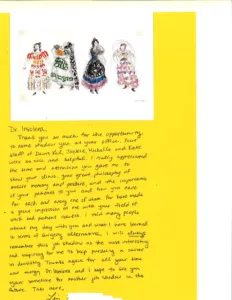 Dr.
Thank you so much for the opportunity
to come shadow you at your office. Your
staff of
were so nice and helpful. I really appreciated
the time and attention you gave me to
show your clinic, your great philosophy of
and the importance
of your patients to you and how you care
for each and every one of them. You have made
a great impression on me with your field of
work and patient
I told many people
about my day with you and what I have learned
in terms of
I will always
remember this job shadow as the most interesting
and inspiring for me to keep pursuing a career
in dentistry. Thanks again for all your time
and energy Dr.
and I hope to see you
again sometime for another job shadow in the
future. Take care,